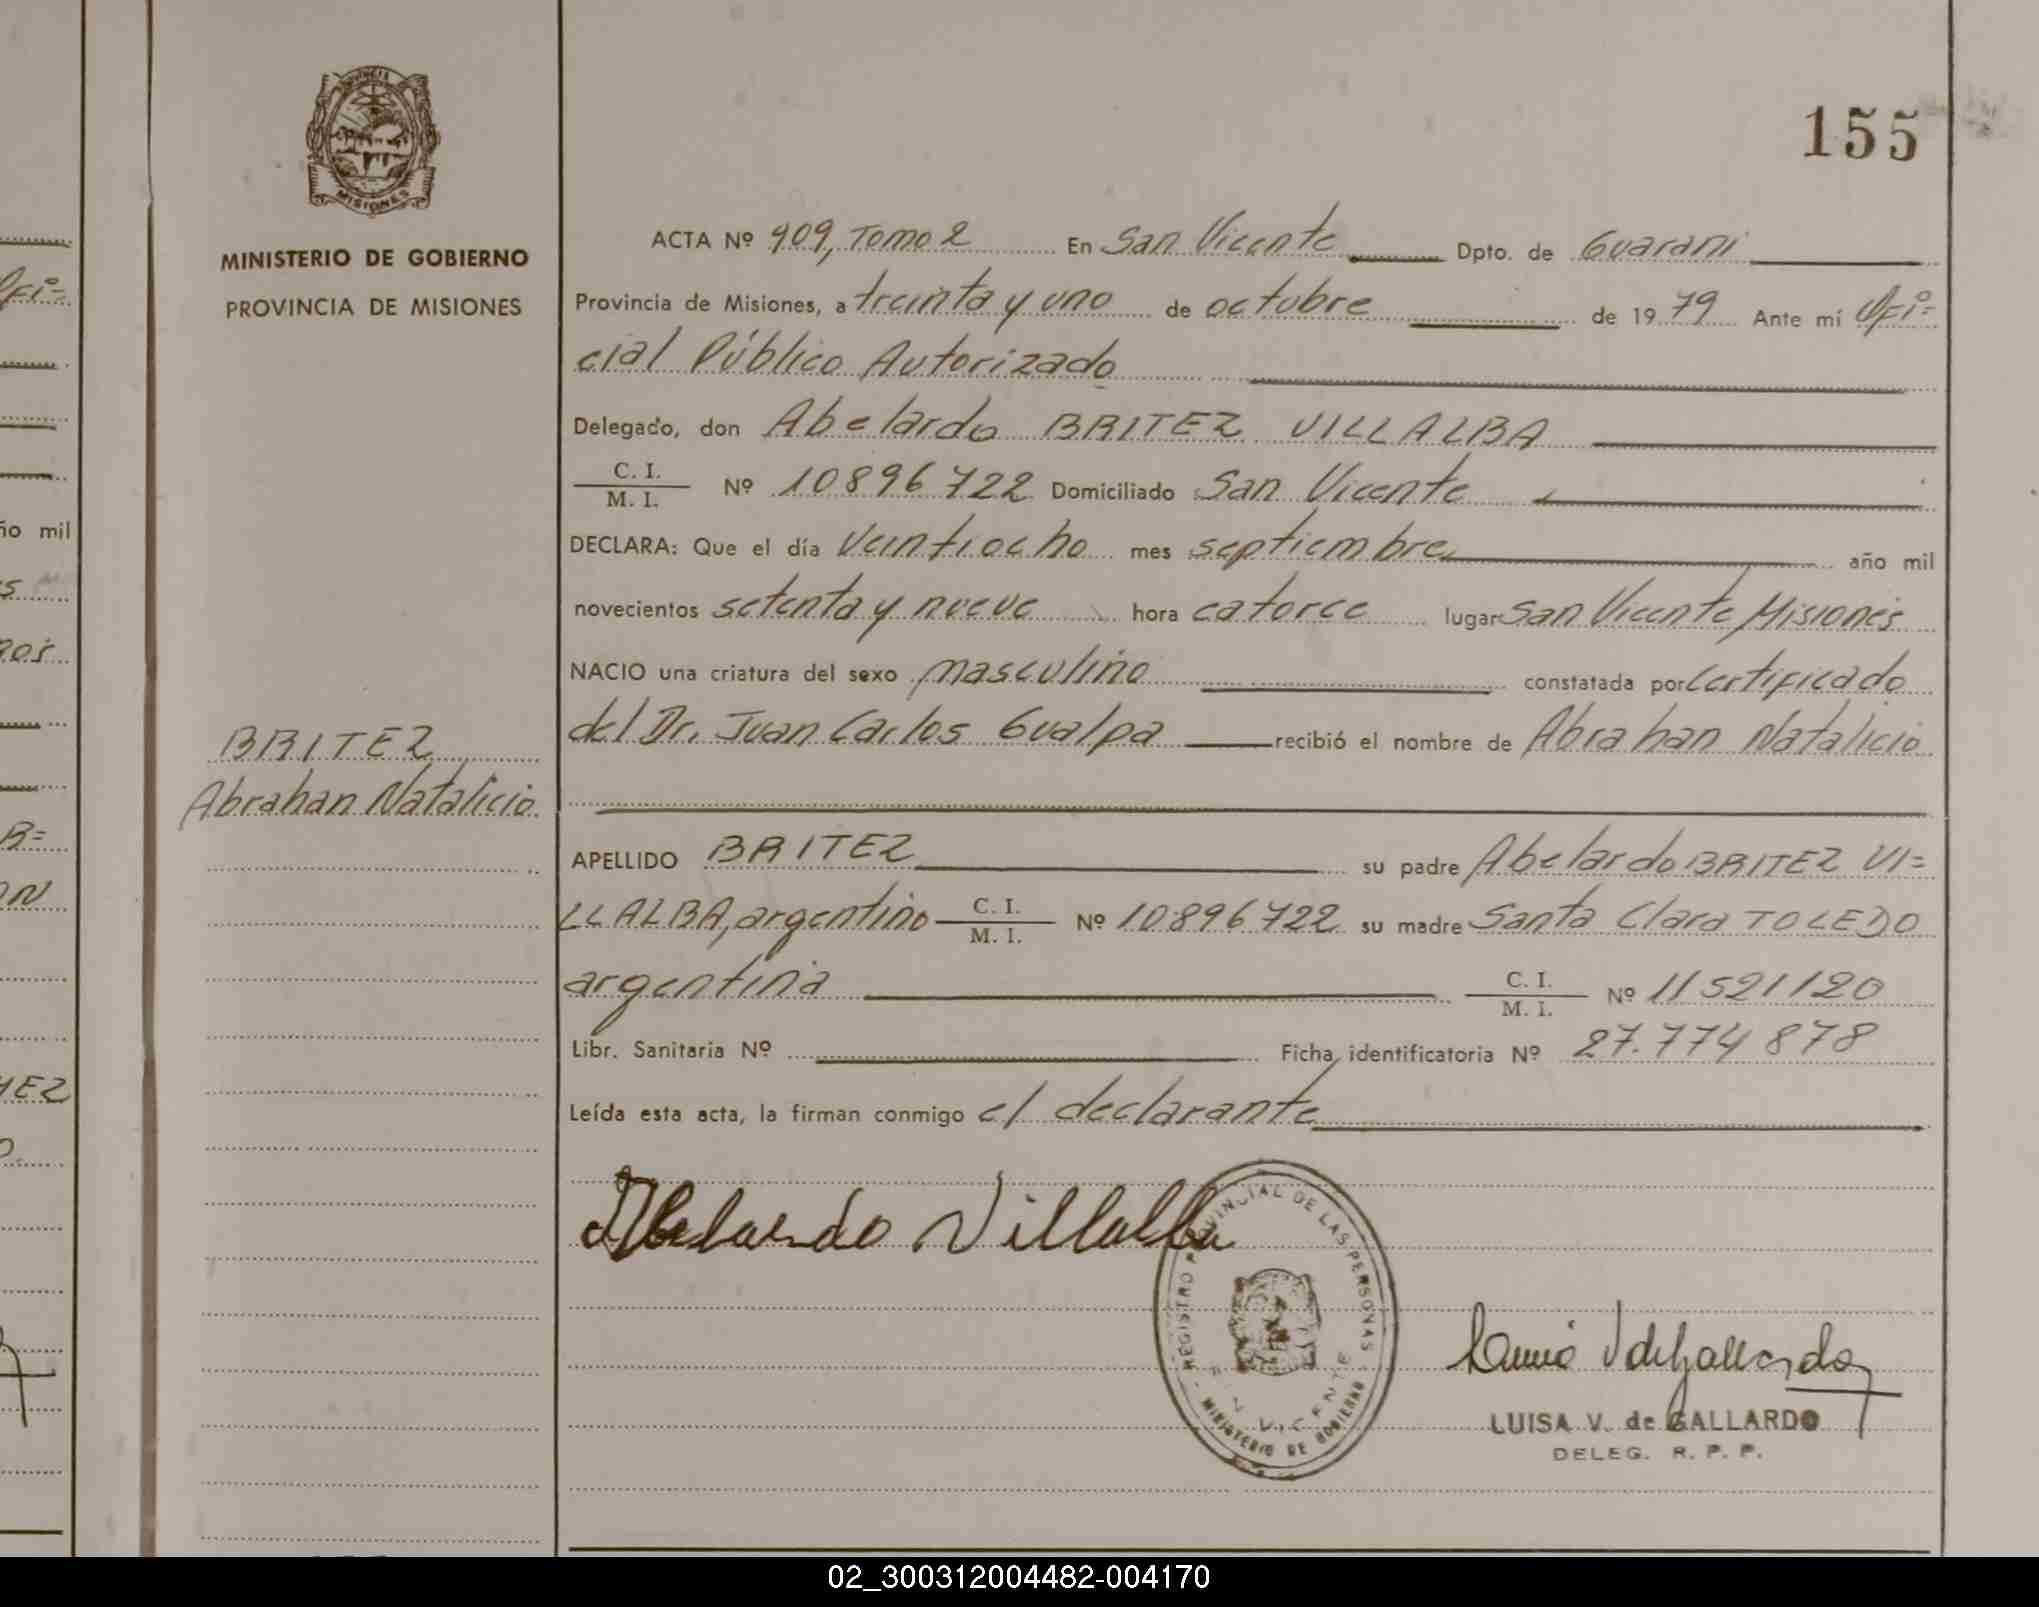 155
PROVINCIA
MISIONES
MINISTERIO DE GOBIERNO
PROVINCIA DE MISIONES
ACTA Nº 909, Tomo 2 En San Vicente Dpto. de Guarani
Provincia de Misiones, a treinta y uno de octubre de 1979 Ante mí Ofi=
cial Público Autorizado
Delegado, don Abelardo BRITEZ VILLALBA
C. I.
M. I. Nº 10896722 Domiciliado San Vicente
DECLARA: Que el día veintiocho mes septiembre año mil
novecientos setenta y nueve hora catorce lugar San Vicente, Misiones
NACIO una criatura del sexo masculino constatada por certificado
del Dr. Juan Carlos Gualpa recibió el nombre de Abrahan Natalicio
BRITEZ
Abrahan Natalicio
APELLIDO BRITEZ su padre Abelardo BRITEZ VI=
LLALBA, argentino C. I.
M. I. Nº 10896722 su madre Santa Clara TOLEDO
argentina C. I.
M. I. Nº 11521120
Libr. Sanitaria Nº Ficha identificatoria Nº 27.774878
Leída esta acta, la firman conmigo el declarante
Abelardo Villalba
REGISTRO PROVINCIAL DE LAS PERSONAS
VICENTE
MINISTERIO DE GOBIERNO
LUISA V. de GALLARDO
DELEG. R. P. P.
Ofi=
ño mil
B=
ON
02_300312004482-004170